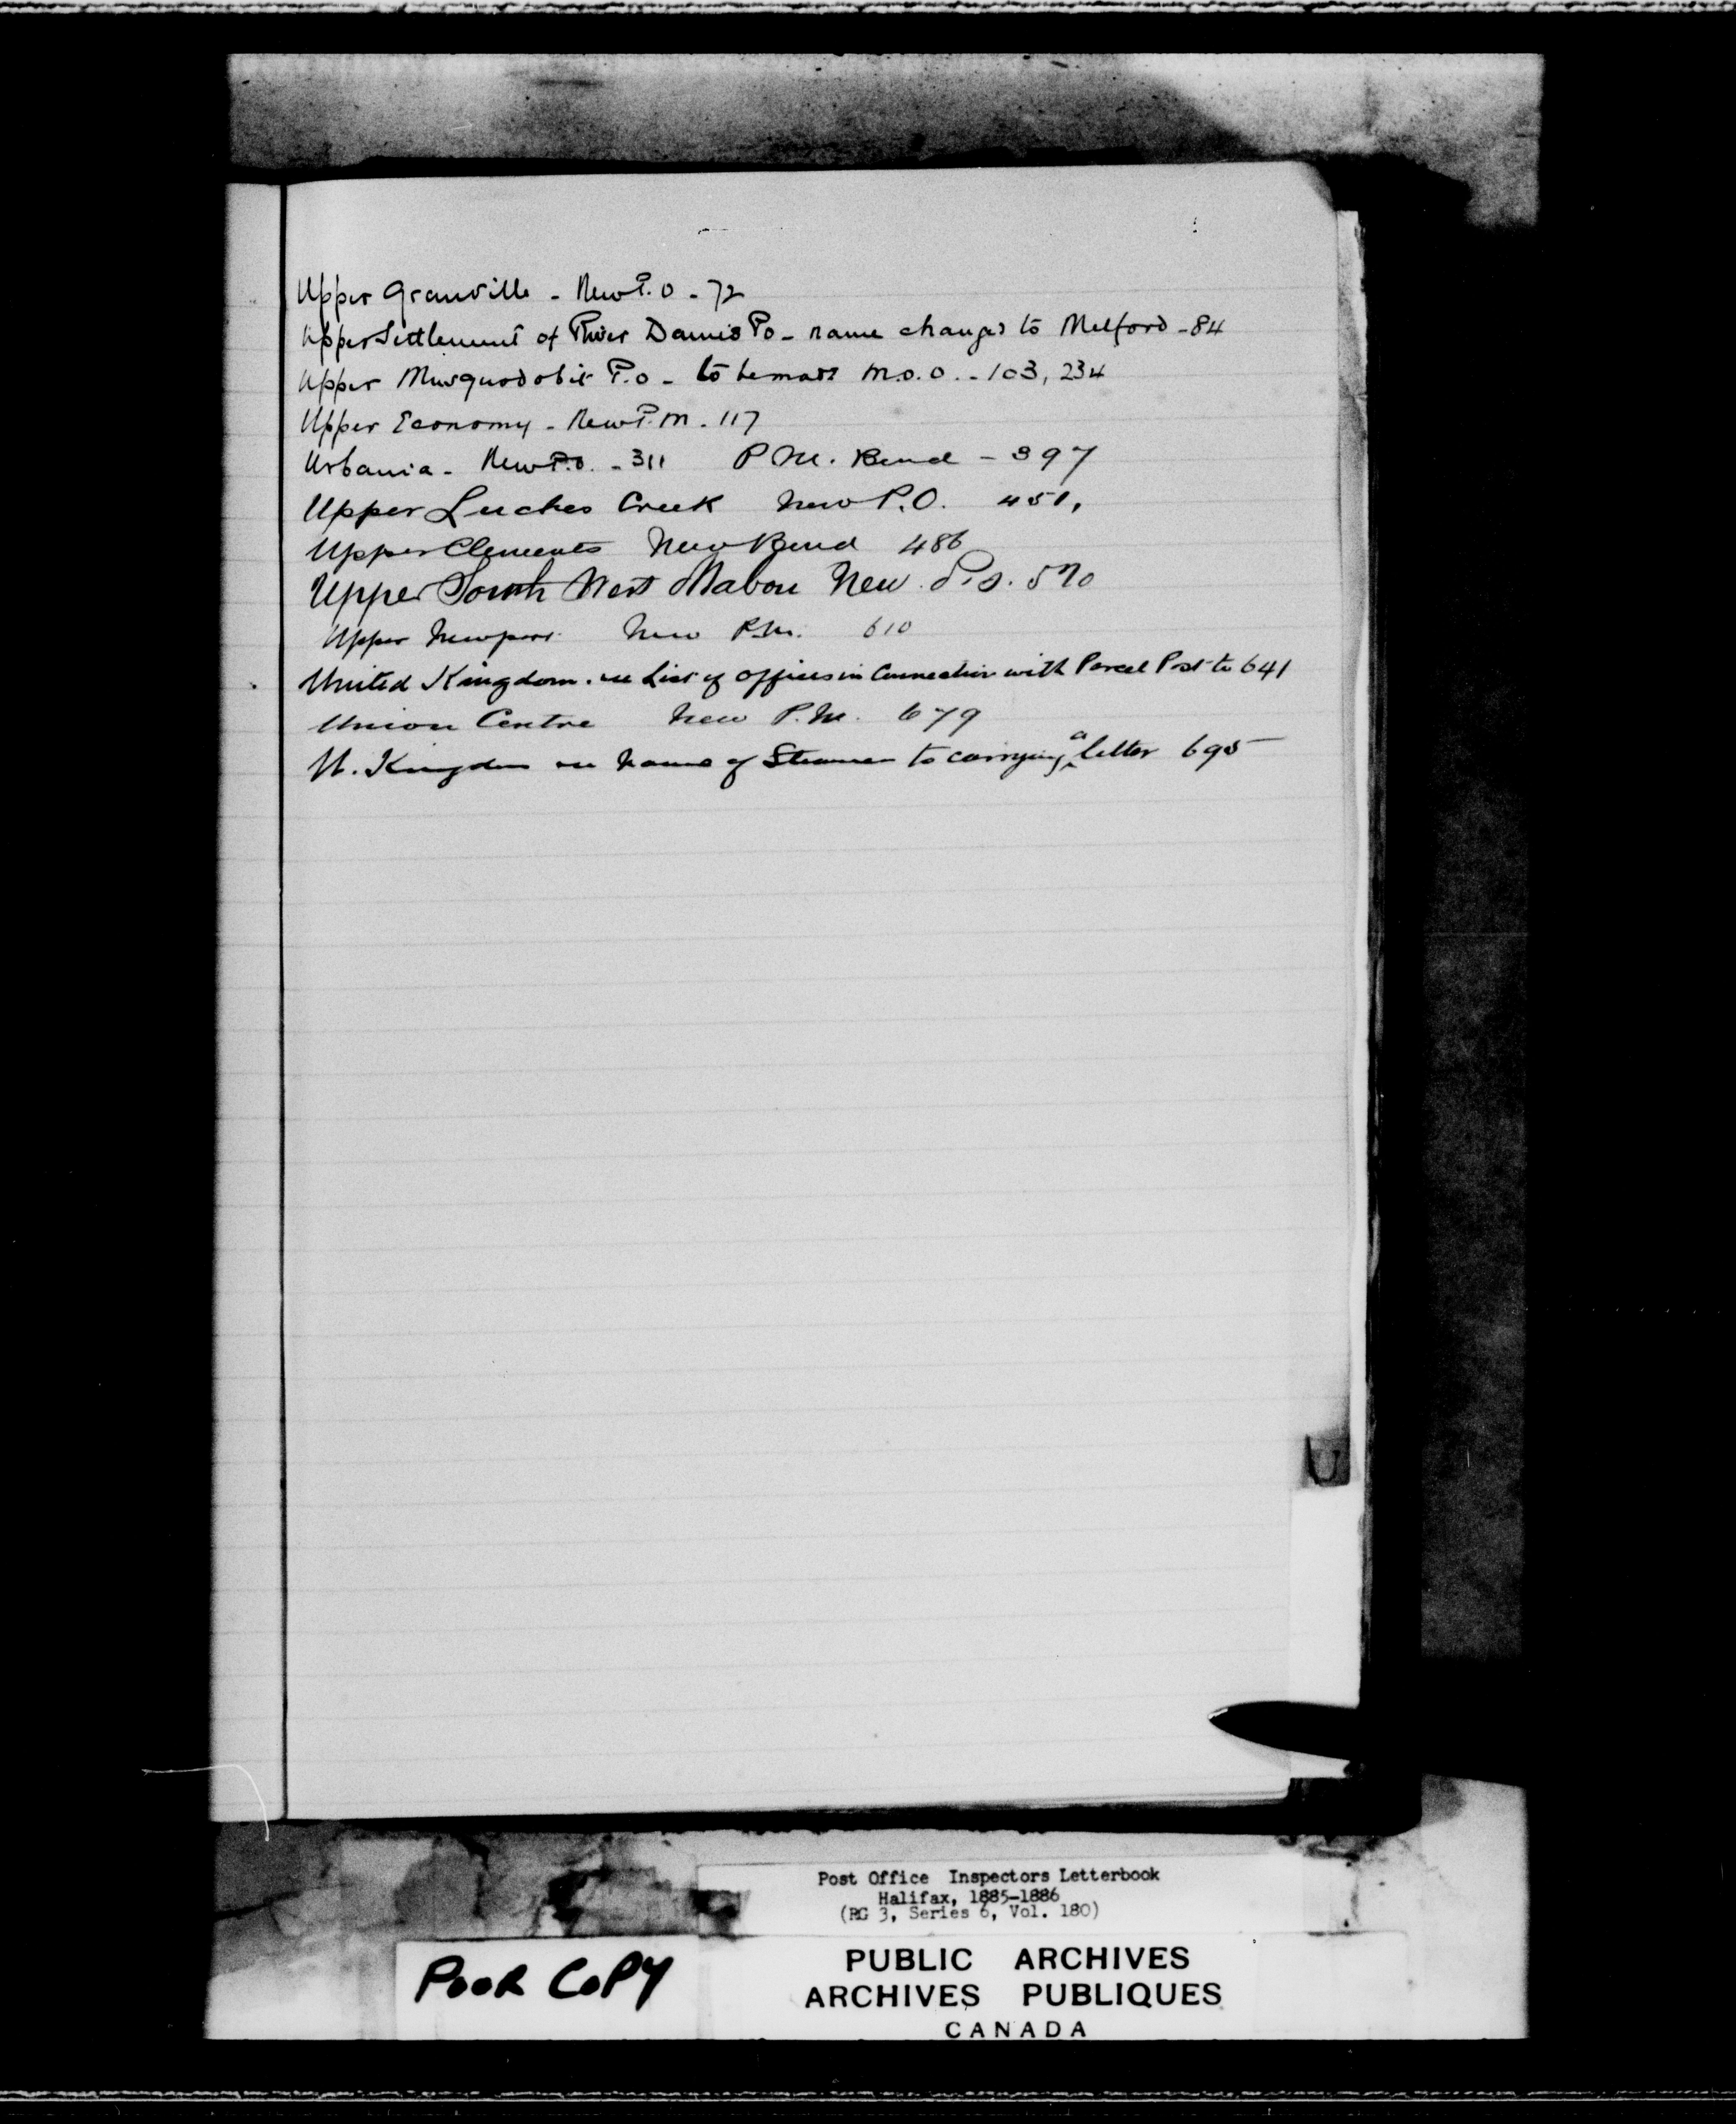 Upper Granville - New P.O - 72
Upper Settlement of River Dennis Po - name changed to Melford - 84
Upper Musquodobit P.o - to be made M.O.O. - 103, 234
Upper Economy - New P.M - 117
Urbania - New P.O. - 311 P M. Bond - 397
Upper Leiches Creek New P.O. 451,
Upper Clements New Bond 486
Upper South West Mabou New P.O. 570
Upper Newport New P.M. 610
United Kingdom. re List of offices in Connection with Parcel Post to 641
Union Centre New P.M. 679
U. Kingdom re name of Steamer to carrying a letter 695
U
Post Office Inspectors Letterbook
Halifax, 1885-1886
(RG 3, Series 6, Vol. 180)
POOR COPY
PUBLIC ARCHIVES
ARCHIVES PUBLIQUES
CANADA